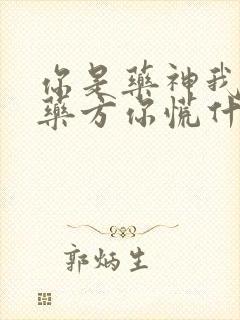 你是藥神我
藥方你慌什
郭炳生